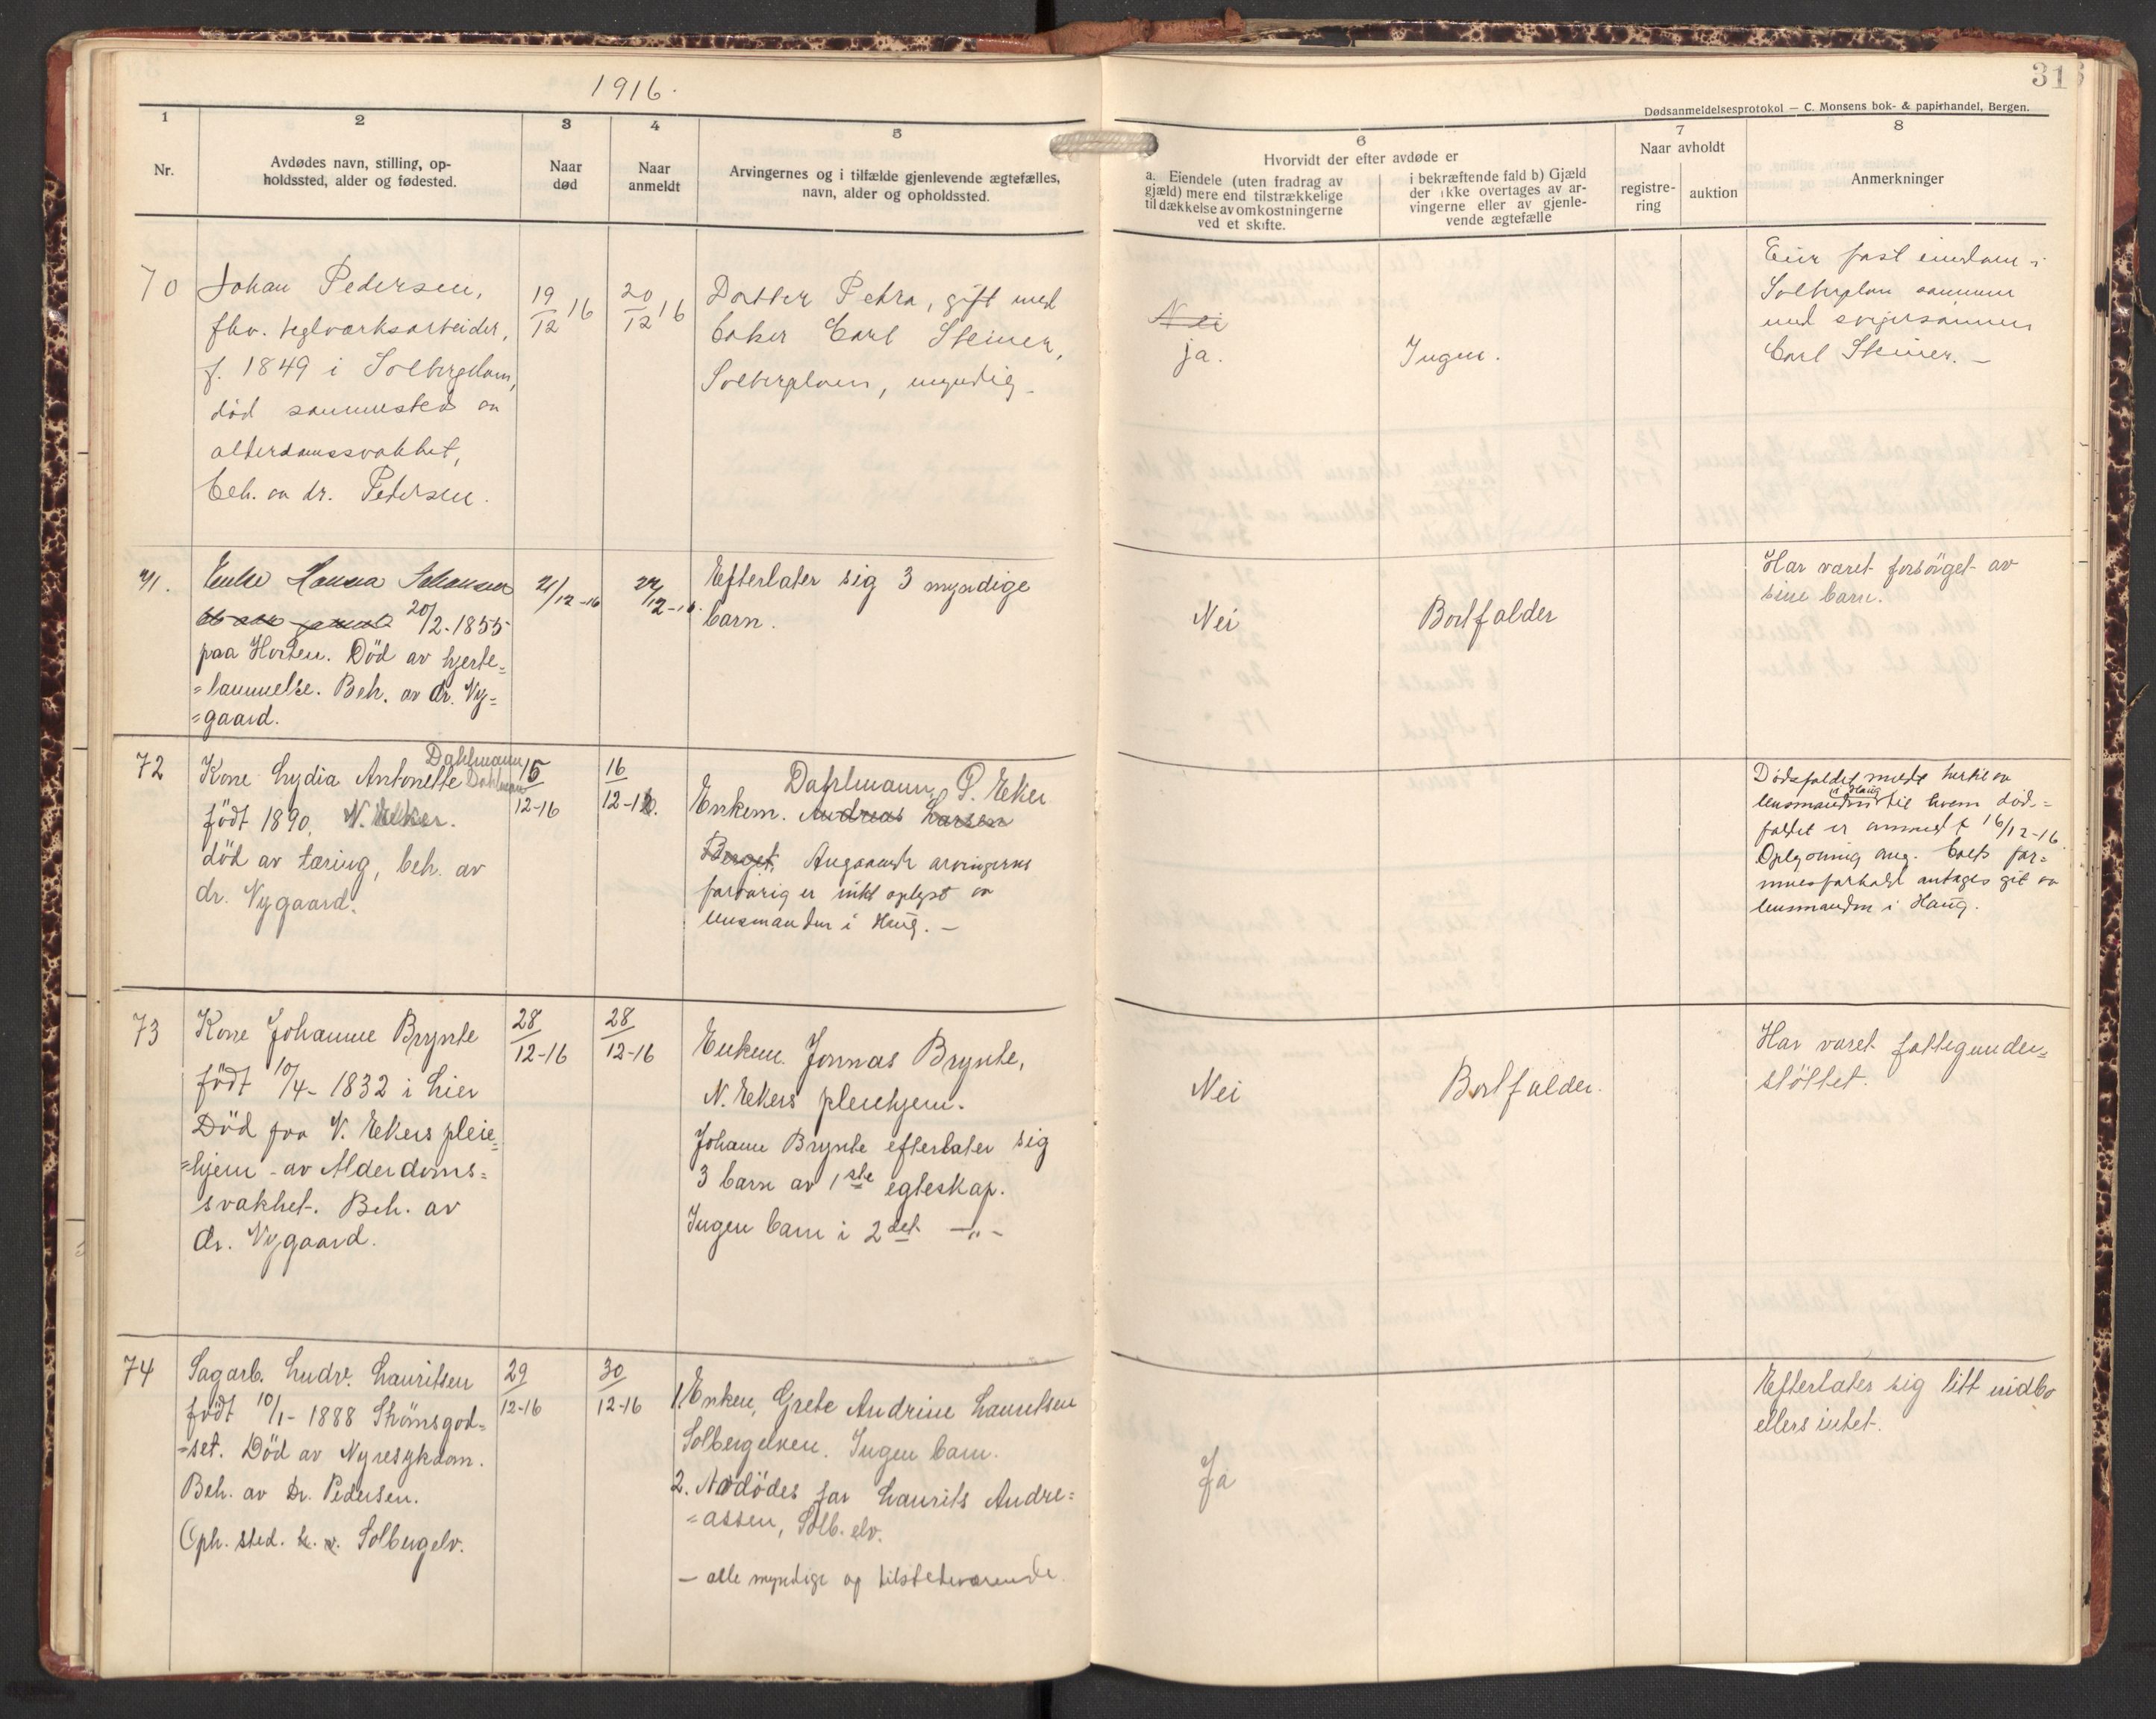 1916.
31
Dødsanmeldelsesprotokol — C. Monsens bok- & papirhandel, Bergen.
1
Nr.
2
Avdødes navn, stilling, op-
holdssted, alder og fødested.
3
Naar
død
4
Naar
anmeldt
5
Arvingernes og i tilfælde gjenlevende ægtefælles,
navn, alder og opholdssted.
6
Hvorvidt der efter avdøde er
a. Eiendele (uten fradrag av
gjæld) mere end tilstrækkelige
til dækkelse av omkostningerne
ved et skifte.
i bekræftende fald b) Gjæld
der ikke overtages av ar-
vingerne eller av gjenle-
vende ægtefælle
7
Naar avholdt
registre-
ring
auktion
8
Anmerkninger
70
Johan Pedersen,
fhv. teglværksarbeider,
f. 1849 i Solbergelven,
død sammesteds av
alderdomssvakhet,
beh. av dr. Pedersen.
19/12 16
20/12 16
Datter Petra, gift med
baker Carl Steiner,
Solbergelven, myndig.
Nei
ja.
Ingen.
Eier fast eiendom i
Solbergelven sammen
med svigersønnen
Carl Steiner. —
71.
Enke Hanna Johansen
20/2. 1855
paa Horten. Död av hjerte=
=lammelse. Beh. av dr. Ny=
=gaard.
21/12-16
22/12-16.
Efterlater sig 3 myndige
barn.
Nei
Bortfalder
Har været forsörget av
sine barn.
72
Kone Lydia Antonette Dahlmann
Dahlmann
födt 1890, N. Eker.
död av tæring, beh. av
dr. Nygaard.
15/12-16
16/12-16.
Dahlmann, Ö. Eker
Enkem. Andreas Larsen
Berget, Angaaende arvingerne
forøvrig er intet oplyst av
lensmanden i Haug. —
Dödsfaldet meldt hertil av
lensmanden i Haug til hvem död=
faldet er anmeldt 16/12-16.
Oplysning ang. boets for=
muesforhold antages git av
lensmanden i Haug.
73
Kone Johanne Brynte
födt 10/4- 1832 i Lier
Död paa N. Ekers pleie=
=hjem - av Alderdoms=
svakhet. Beh. av
dr. Nygaard.
28/12-16
28/12-16
Enkem. Jonnas Brynte,
N. Ekers pleiehjem.
Johanne Brynte efterlater sig
3 barn av 1ste egteskap.
Ingen barn i 2det —„—
Nei
Bortfalder.
Har været fattigunder=
støttet.
74
Sagarb. Ludv. Lauritsen
födt 10/1- 1888 Strømsgod=
=set. Död av Nyresykdom.
Beh. av Dr. Pedersen.
Oph. sted. Solbergelv.
29/12-16
30/12-16
1. Enken, Grete Andrine Lauritsen
Solbergelven. Ingen barn.
2. Avdödes far Laurits Andre=
=assen, Solb. elv.
— alle myndige og tilstedeværende.
Ja
Efterlater sig litt indbo
ellers intet.